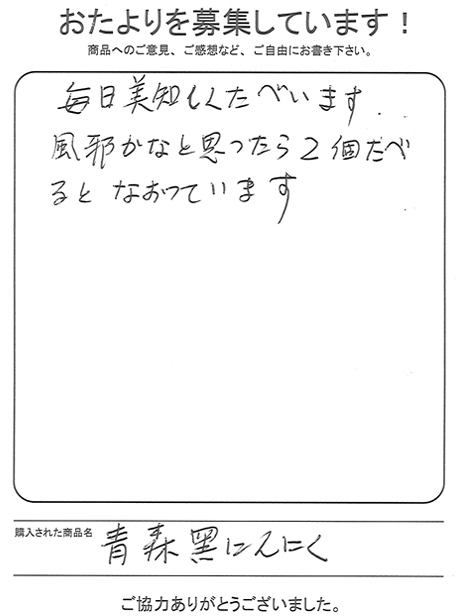 おたよりを募集しています！
商品へのご意見、ご感想など、ご自由にお書き下さい。
毎日美知しくたべいます
風邪かなと思ったら2個たべ
るとなおっています
購入された商品名
青森黒にんにく
ご協力ありがとうございました。